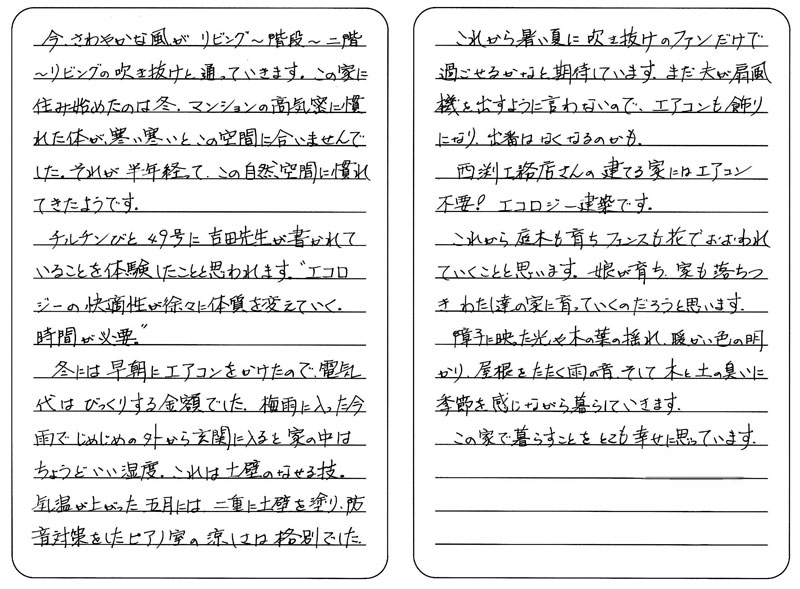 今、さわやかな風が リビング〜階段〜二階
〜リビングの吹き抜けと通っていきます。この家に
住み始めたのは冬、マンションの高気密に慣
れた体が、寒い寒いと、この空間に合いませんで
した。それが半年経って、この自然空間に慣れ
てきたようです。
チルチンびと 49号に吉田先生が書かれて
いることを体験したことと思われます。"エコロ
ジーの快適性が徐々に体質を変えていく。
時間が必要。"
冬には早朝にエアコンをかけたので、電気
代はびっくりする金額でした。梅雨に入った今
雨でじめじめの外から玄関に入ると家の中は
ちょうどいい湿度。これは土壁のなせる技。
気温が上がった五月には、二重に土壁を塗り、防
音対策をしたピアノ室の涼しさは格別でした。
これから暑い夏に吹き抜けのファンだけで
過ごせるかなと期待しています。まだ夫が扇風
機を出すように言わないので、エアコンも飾り
になり、出番はなくなるのかも。
西渕工務店さんの建てる家にはエアコン
不要！エコロジー建築です。
これから庭木も育ちフェンスも花でおおわれ
ていくことと思います。娘が育ち、家も落ちつ
き わたし達の家に育っていくのだろうと思います。
障子に映った光や木の葉の揺れ、暖かい色の明
かり、屋根をたたく雨の音、そして木と土の臭いに
季節を感じながら暮らしていきます。
この家で暮らすことをとても幸せに思っています。